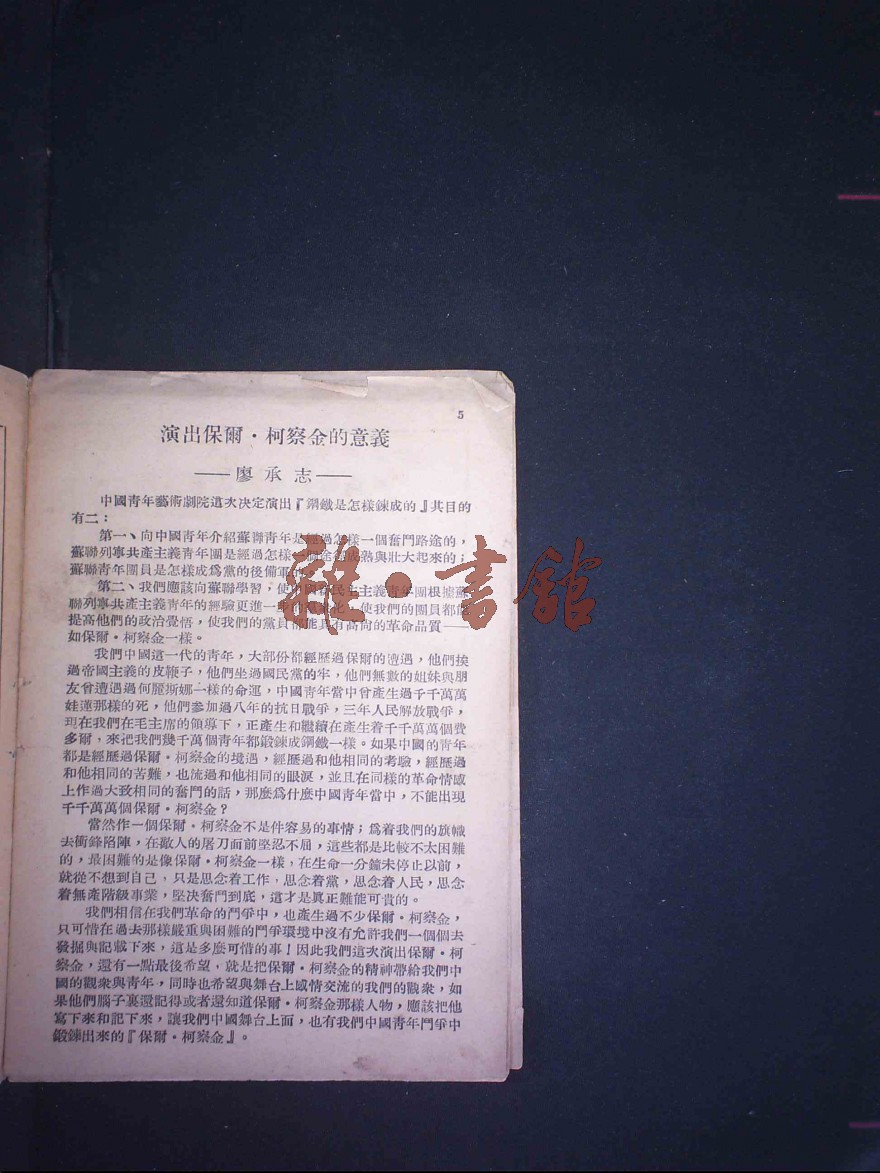 5
演出保爾·柯察金的意義
——廖承志——
中國靑年藝術劇院這次決定演出『鋼鐵是怎樣鍊成的』其目的
有二：
第一、向中國靑年介紹蘇聯靑年是經過怎樣一個奮鬥路途的，
蘇聯列寧共產主義靑年團是經過怎樣一個途徑成熟與壯大起來的；
蘇聯靑年團員是怎樣成爲黨的後備軍的。
第二、我們應該向蘇聯學習，使中國新民主主義靑年團根據蘇
聯列寧共產主義靑年的經驗更進一步的，使我們的團員都能
提高他們的政治覺悟，使我們的黨員都能具有高尙的革命品質——
如保爾·柯察金一樣。
我們中國這一代的靑年，大部份都經歷過保爾的遭遇，他們挨
過帝國主義的皮鞭子，他們坐過國民黨的牢，他們無數的姐妹與朋
友曾遭遇過何麗斯娜一樣的命運，中國靑年當中曾產生過千千萬萬
娃蓮那樣的死，他們參加過八年的抗日戰爭，三年人民解放戰爭，
現在我們在毛主席的領導下，正產生和繼續在產生着千千萬萬個費
多爾，來把我們幾千萬個靑年都鍛鍊成鋼鐵一樣。如果中國的靑年
都是經歷過保爾·柯察金的境遇，經歷過和他相同的考驗，經歷過
和他相同的苦難，也流過和他相同的眼淚，並且在同樣的革命情感
上作過大致相同的奮鬥的話，那麼爲什麼中國靑年當中，不能出現
千千萬萬個保爾·柯察金？
當然作一個保爾·柯察金不是件容易的事情；爲着我們的旗幟
去衝鋒陷陣，在敵人的屠刀面前堅忍不屈，這些都是比較不太困難
的，最困難的是像保爾·柯察金一樣，在生命一分鐘未停止以前，
就從不想到自己，只是思念着工作，思念着黨，思念着人民，思念
着無產階級事業，堅决奮鬥到底，這才是眞正難能可貴的。
我們相信在我們革命的鬥爭中，也產生過不少保爾·柯察金，
只可惜在過去那樣嚴重與困難的鬥爭環境中沒有允許我們一個個去
發掘與記載下來，這是多麼可惜的事！因此我們這次演出保爾·柯
察金，還有一點最後希望，就是把保爾·柯察金的精神帶給我們中
國的觀衆與靑年，同時也希望與舞台上感情交流的我們的觀衆，如
果他們腦子裏還記得或者還知道保爾·柯察金那樣人物，應該把他
寫下來和記下來，讓我們中國舞台上面，也有我們中國靑年鬥爭中
鍛鍊出來的『保爾·柯察金』。
雜·書館